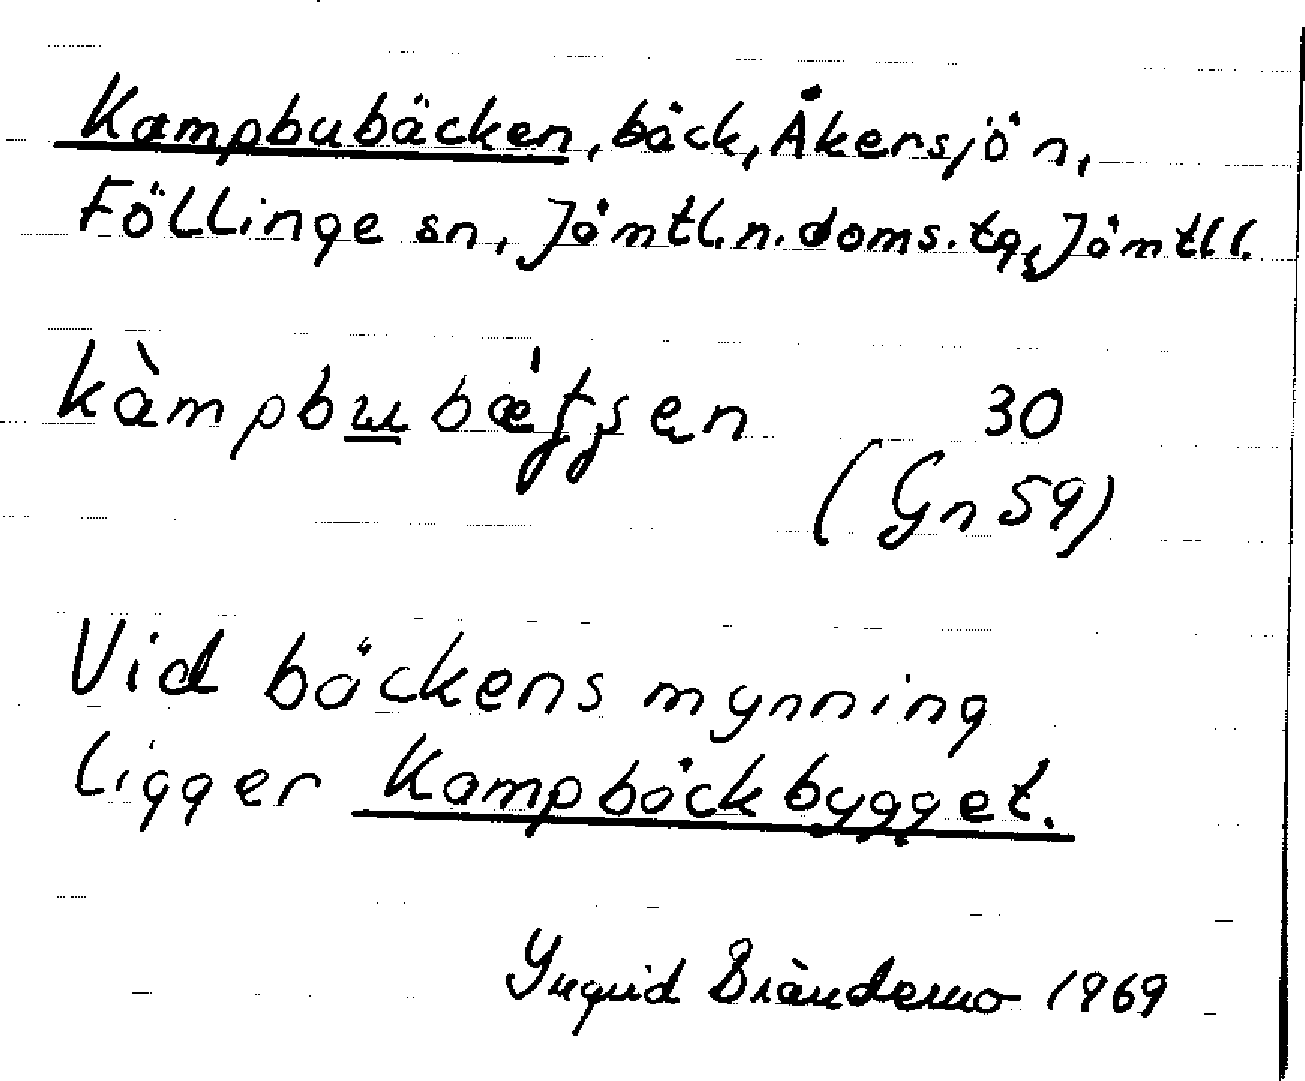 Kampbubäcken, bäck, Åkersjön,
Föllinge sn, Jämtl.n.doms.tg, Jämtl l.
30
(Gn 59)
Vid bäckens mynning
ligger Kampbäckbygget.
Yngvid Brändemo 1969